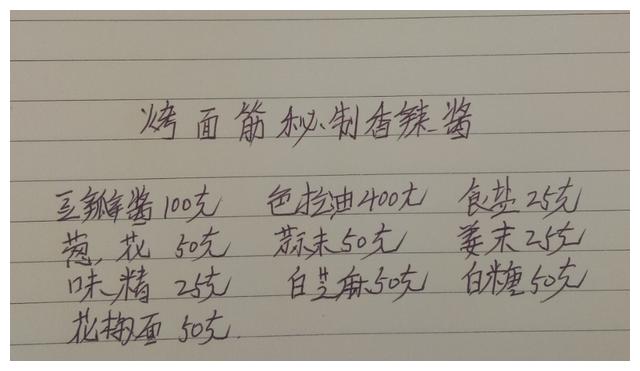 烤面筋秘制香辣酱
豆瓣酱100克 色拉油400克 食盐25克
葱花 50克 蒜末50克 姜末25克
味精 25克 白芝麻50克 白糖50克
花椒面 50克.